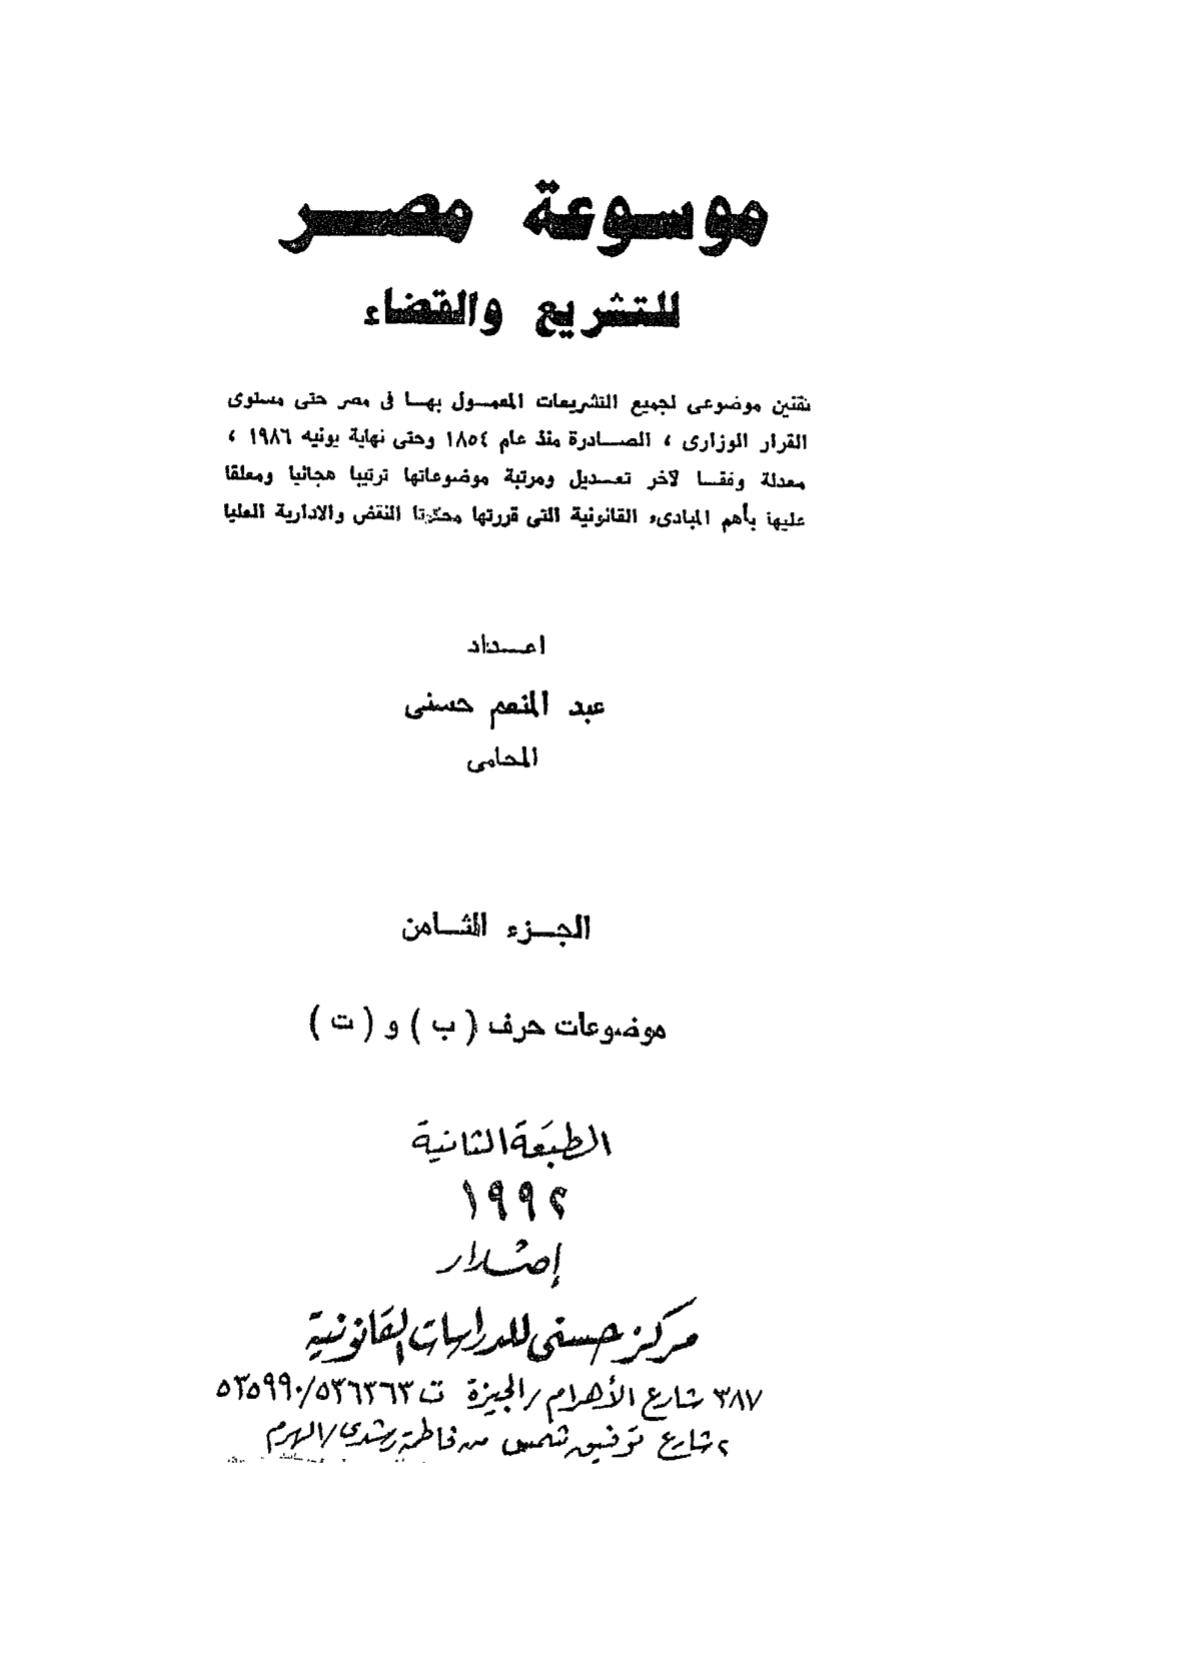 موسوعة مصر
للتشريع والقضاء
تقنين موضوعى لجميع التشريعات المعمول بها فى مصر حتى مستوى
القرار الوزارى ، الصادرة منذ عام ١٨٥٤ وحتى نهاية يونيه ١٩٨٦ ،
معدلة وفقا لآخر تعديل ومرتبة موضوعاتها ترتيبا هجائيا ومعلقا
عليها بأهم المبادىء القانونية التى قررتها محكمتا النقض والادارية العليا
اعداد
عبد المنعم حسنى
المحامى
الجزء الثامن
موضوعات حرف ( ب ) و ( ت )
الطبعة الثانية
١٩٩٢
إصدار
مركز حسنى للدراسات القانونية
٣٨٧ شارع الأهرام / الجيزة ت ٥٣٦٣٦٣/٥٣٥٩٩٠
٢ شارع توفيق شمس من فاطمة رشدى / الهرم